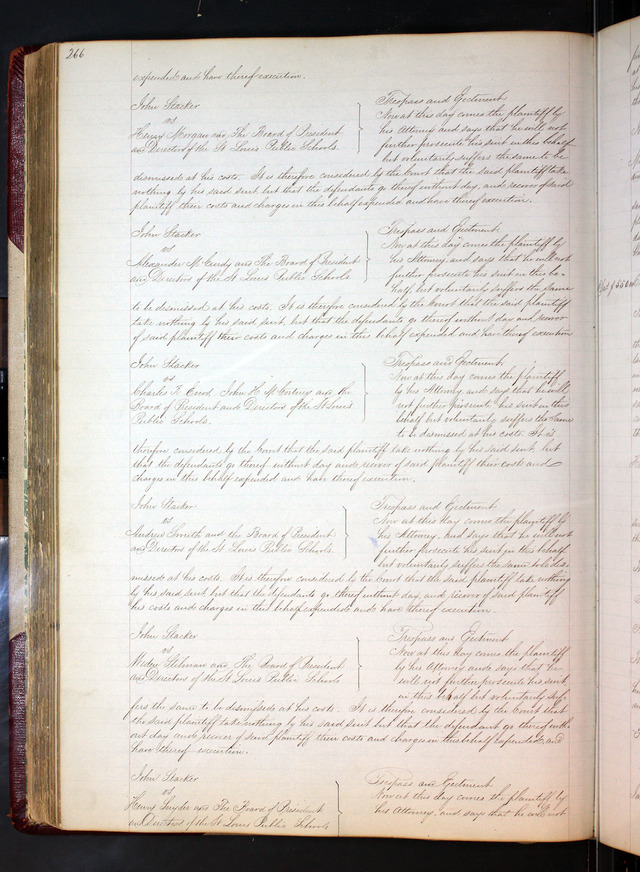 266
expended and have thereof execution.
John Stacker
vs
Henry Morgan and The Board of President
and Director of the St Louis Public Schools
Trespass and Ejectment
Now at this day comes the plaintiff by
his Attorney and says that he will not
further prosecute his suit in this behalf
but voluntarily suffers the same to be
dismissed at his costs. It is therefore considered by the Court that the said plaintiff take
nothing by his said suit but that the defendants go thereof without day, and recover of said
plaintiff their costs and charges in this behalf expended and have thereof execution.
John Stacker
vs
Alexander McCurdy and The Board of President
and Directors of the St Louis Public Schools
Trespass and Ejectment.
Now at this day comes the plaintiff by
his Attorney and says that he will not
further prosecute his suit in this be-
half, but voluntarily suffers the same
to be dismissed at his costs. It is therefore considered by the Court that the said plaintiff
take nothing by his said suit, but that the defendants go thereof without day and recover
of said plaintiff their costs and charges in this behalf expended and have thereof execution
John Stacker
vs
Charles Ecod John H and the
Board of President and Directors of the St Louis
Public Schools.
Trespass and Ejectment.
Now at this day comes the plaintiff
by his Attorney and says that he will
not further prosecute his suit in this
behalf but voluntarily suffers the same
to be dismissed at his costs. It is
therefore considered by the Court that the said plaintiff take nothing by his said suit but
that the defendants go thereof without day and recover of said plaintiff their costs and
charges in this behalf expended and have thereof execution.
John Stacker
vs
Andrew Smith and the Board of President
and Directors of the St Louis Public Schools
Trespass and Ejectment
Now at this day comes the plaintiff by
his Attorney, and says that he will not
further prosecute his suit in this behalf
but voluntarily suffers the same to be dis
missed at his costs. It is therefore considered by the Court that the said plaintiff take nothing
by his said suit but that the defendants go thereof without day, and recover of said plaintiff
his costs and charges in this behalf expended and have thereof execution.
John Stacker
vs
Stelman and The Board of President
and Directors of the St Louis Public Schools
Trespass and Ejectment
Now at this day comes the plaintiff
by his Attorney and says that he
will not further prosecute his suit
in this behalf but voluntarily suf
fers the same to be dismissed at his costs. It is therefore considered by the Court that
the said plaintiff take nothing by his said suit but that the defendant go thereof with
out day and recover of said plaintiff their costs and charges in this behalf expended, and
have thereof execution.
John Stacker
vs
Henry Snyder and The Board of President
and Directors of the St Louis Public Schools
Trespass and Ejectment
Now at this day comes the plaintiff by
his Attorney, and says that he will not